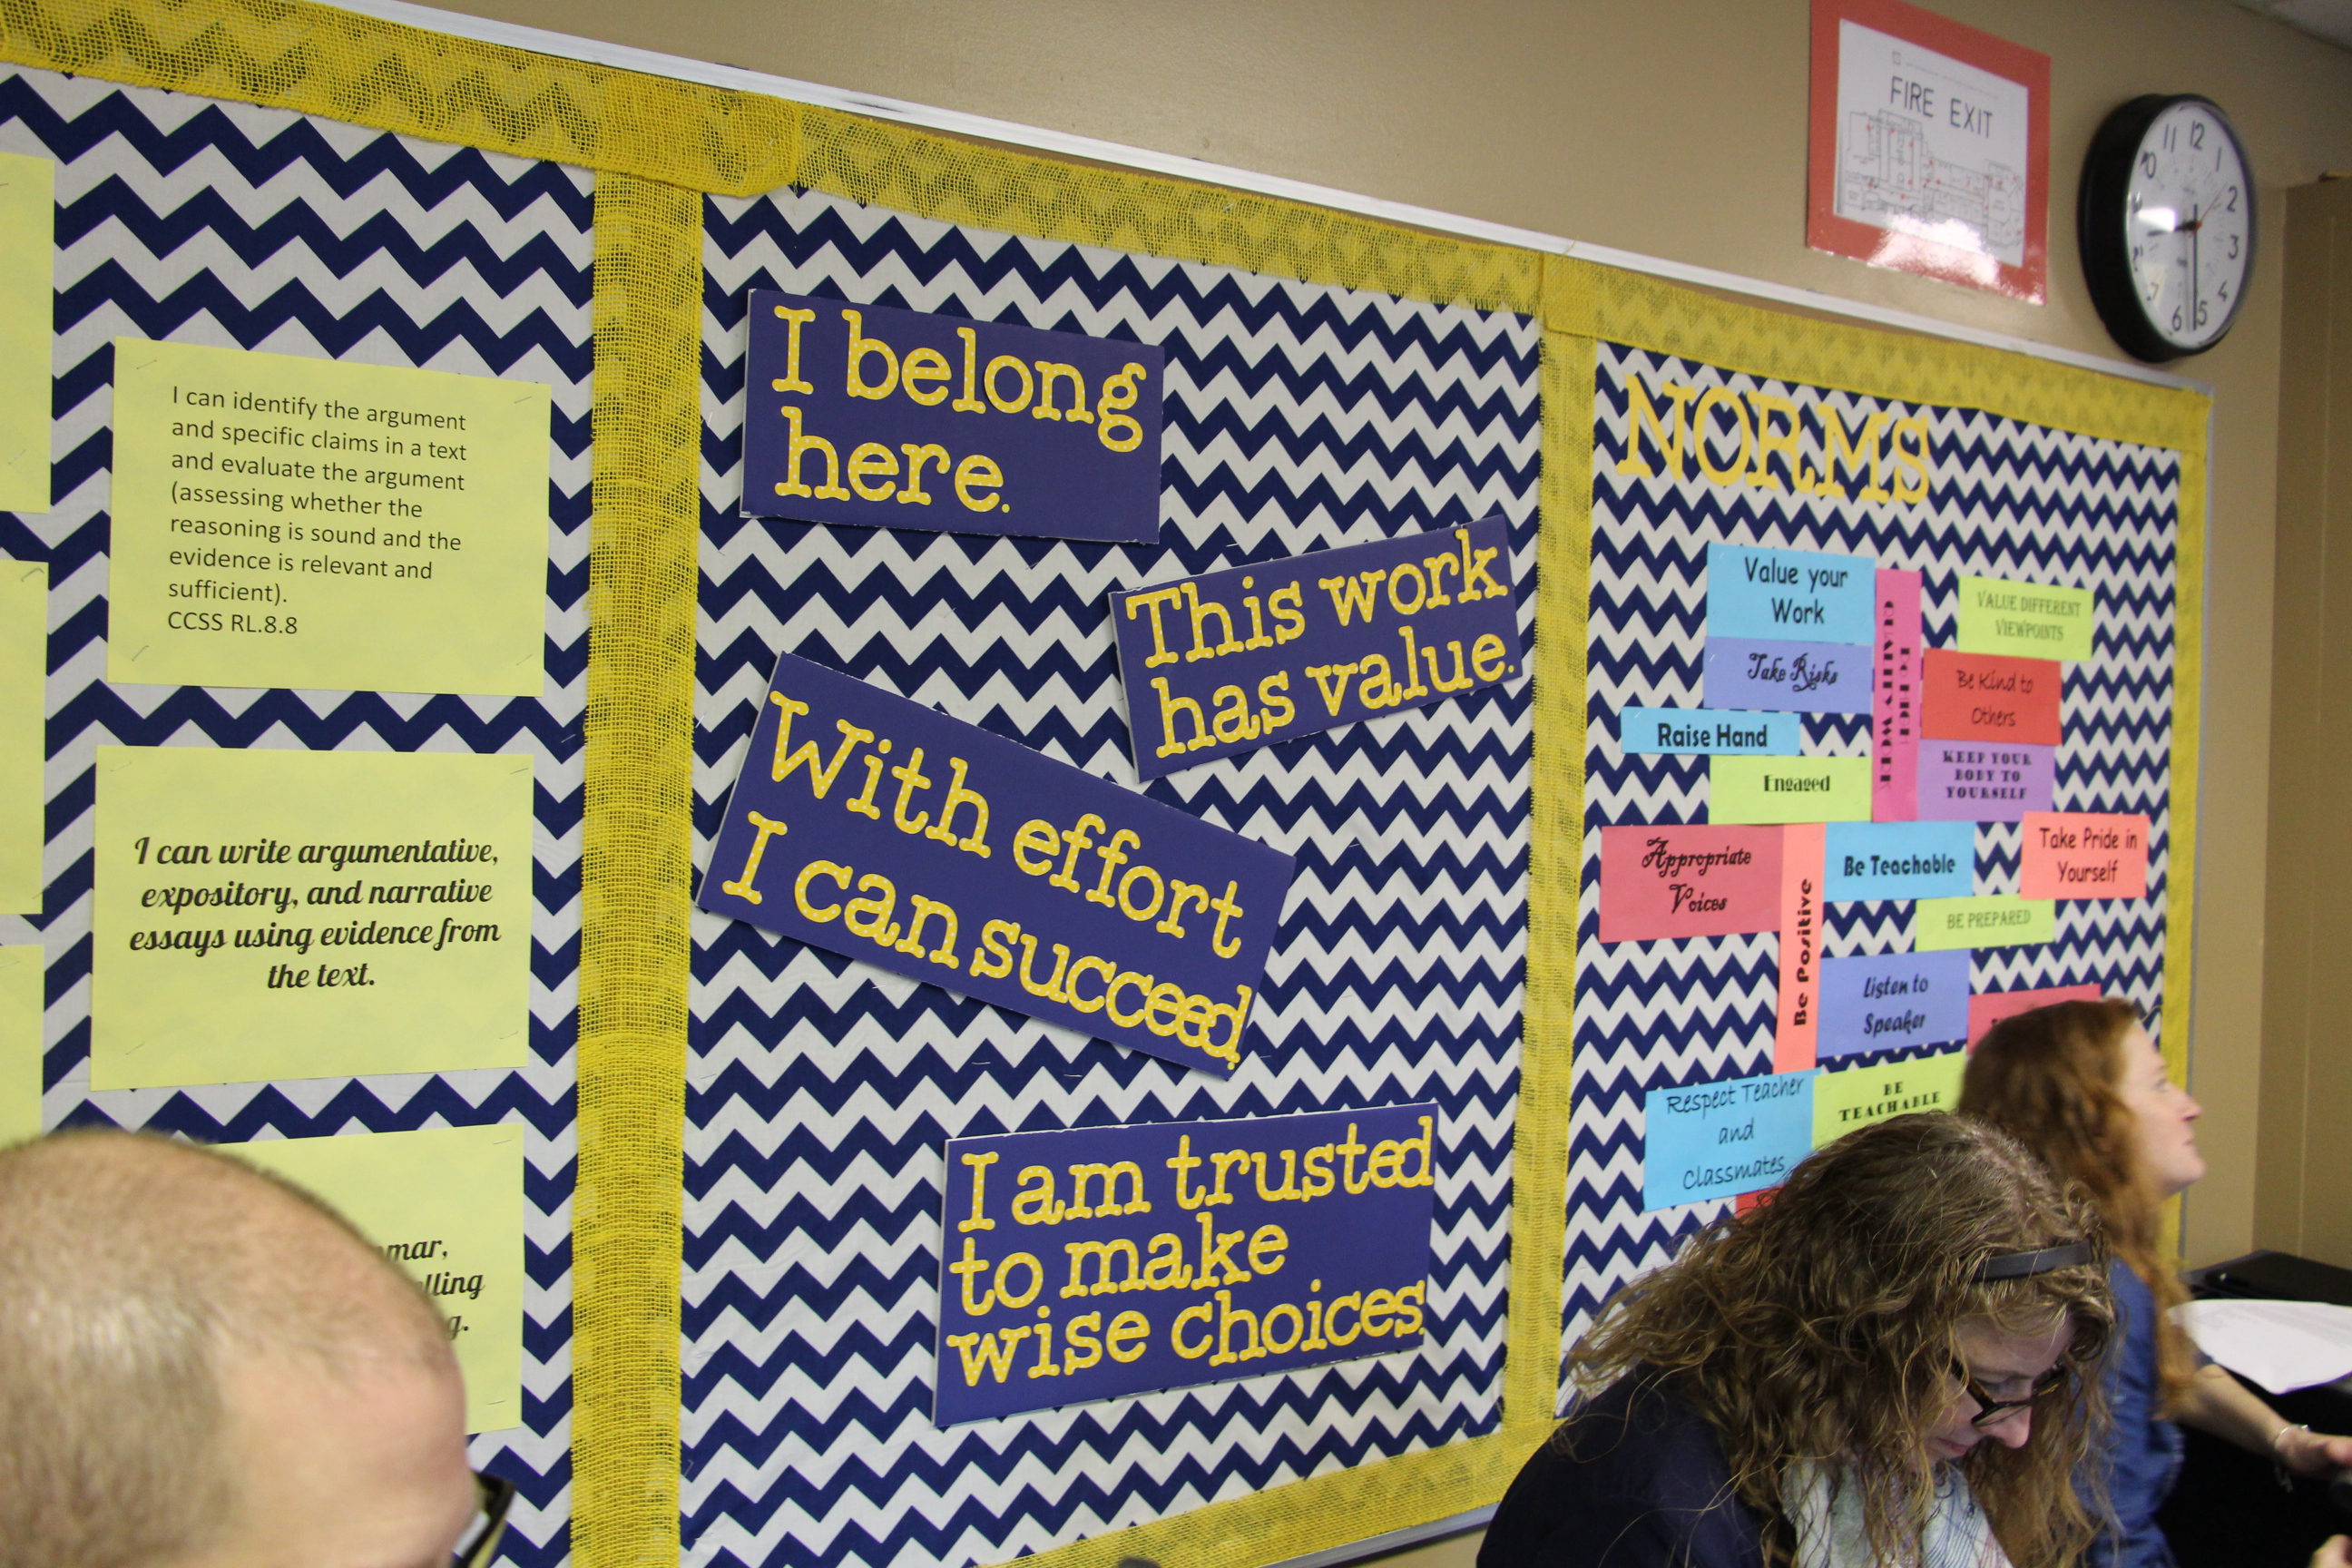 I can identify the argument
and specific claims in a text
and evaluate the argument
(assessing whether the
reasoning is sound and the
evidence is relevant and
sufficient).
CCSS RL.8.8
I can write argumentative,
expository, and narrative
essays using evidence from
the text.
I belong
here.
This work
has value.
With effort
I can succeed.
I am trusted
to make
wise choices.
NORMS
Value your
Work
Take Risks
Raise Hand
Engaged
VALUE DIFFERENT
VIEWPOINTS
Be Kind to
Others
KEEP YOUR
BODY TO
YOURSELF
Appropriate
Voices
Be Positive
Be Teachable
Take Pride in
Yourself
BE PREPARED
Listen to
Speaker
Respect Teacher
and
Classmates
BE
TEACHABLE
FIRE EXIT
11 12 1
2
3
4
5
6
7